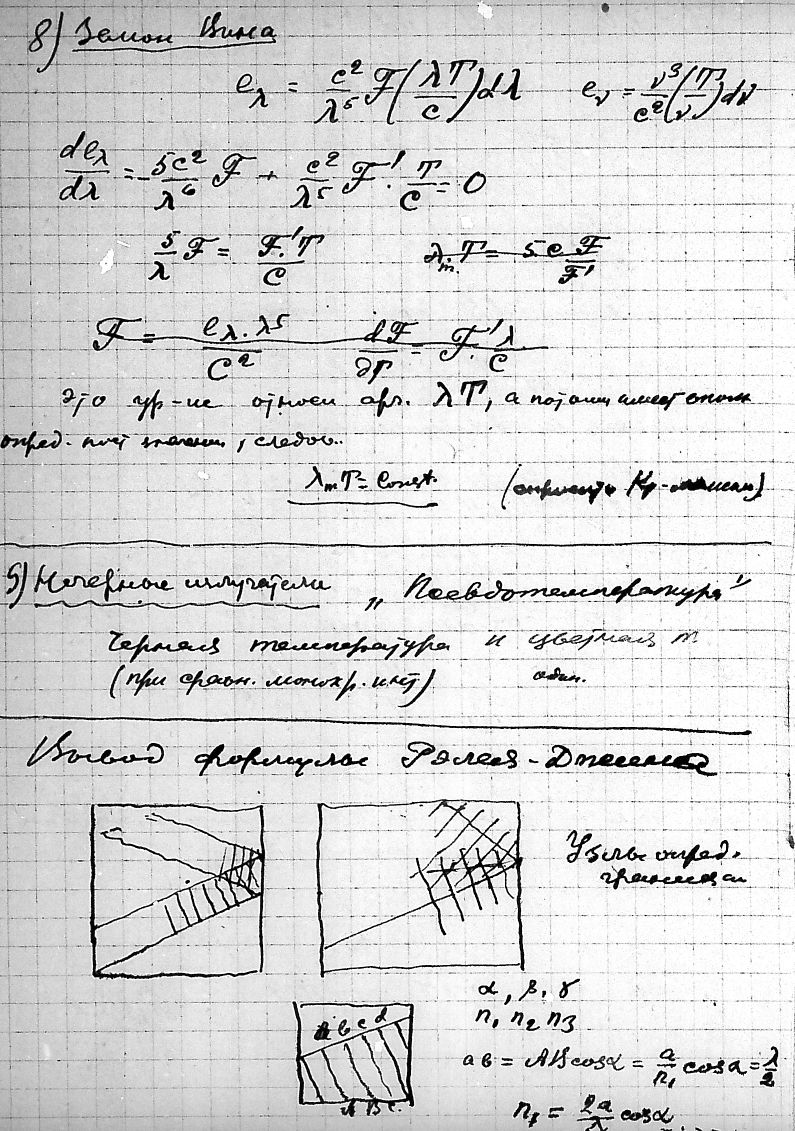 8) Закон Вина
e_λ = c²/λ⁵ F(λT/c) dλ    e_ν = ν³/c² (T/ν) dν
de_λ/dλ = -5c²/λ⁶ F + c²/λ⁵ F' · T/c = 0
5/λ F = F'·T/c    λ_m T = 5c F/F'
F = e_λ · λ⁵/c²    dF/∂T = F'·λ/c
Это ур-ие относи арг. λT, а потому имеет
опред. значении, следов.
λ_m T = Const.
9) Нечерные излучатели „Псевдотемпература"
Черная температура и цветная т.
(при сравн. монохр. инт) один.
Вывод формулы Рэлея-Джинса
Узлы опред.
границами
α, β, γ
n₁ n₂ n₃
b c d
A B C.
ab = AB cosα = a/n₁ cosα = λ/2
n₁ = 2a/λ cosα